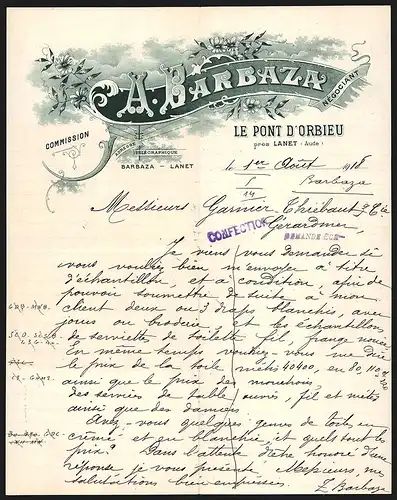 A. BARBAZA
NÉGOCIANT
COMMISSION
ADRESSE
TÉLÉGRAPHIQUE
BARBAZA – LANET
LE PONT D'ORBIEU
près LANET (Aude)
1er Août
Barbaza
14
Messieurs Garnier-Thiébaut & Cie
Gérardmer
CONFECTION
DEMANDE ECH
Je viens vous demander si
vous voulez bien m'envoyer à titre
d'échantillon, et à condition, afin de
pouvoir soumettre de suite à mon
client deux ou 3 draps blanchis, avec
jours ou broderie et les échantillons
de serviettes de toilette fil, frange nouée
En même temps voudriez-vous me dire
le prix de la toile métis 40400, en 80, 110
ainsi que le prix des mouchoirs,
des services de table ouvrés, fil et métis
ainsi que des damiers
Avez-vous quelques genres de toile en
crémé et en blanchie, et quels sont les
prix? Dans l'attente d'être honoré d'une
réponse je vous présente Messieurs, mes
salutations bien empressées.
Barbaza